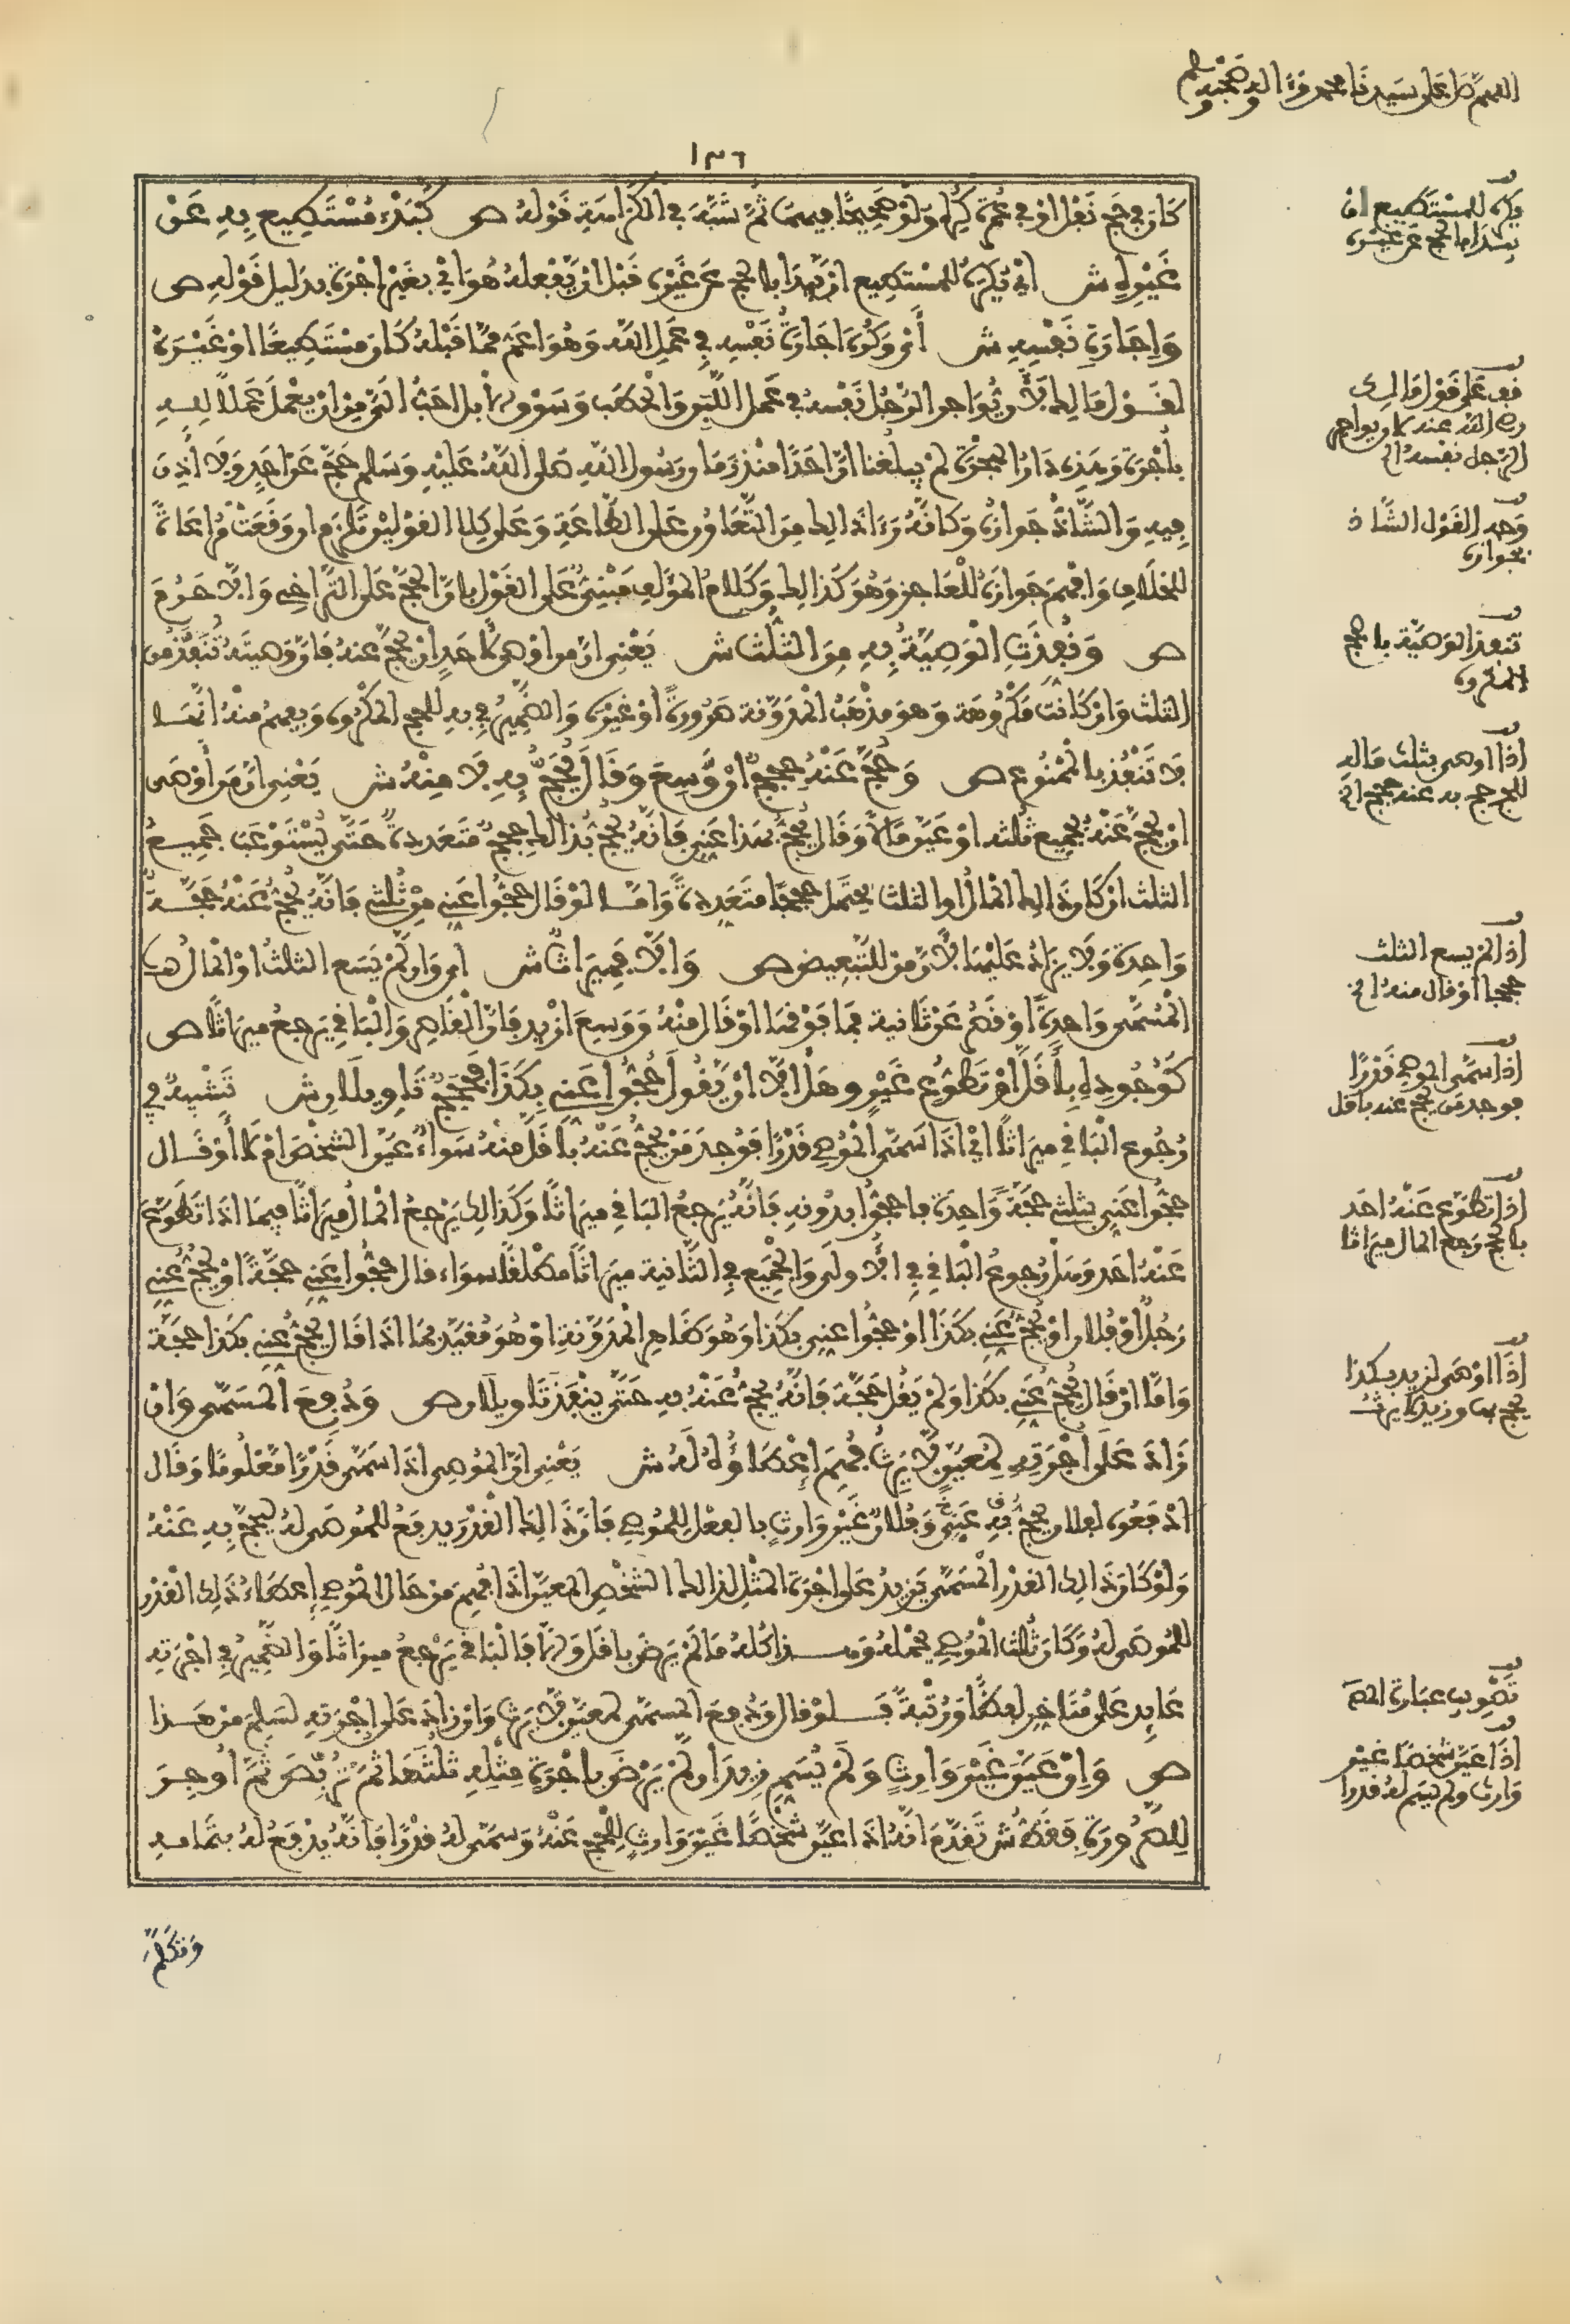 اللهم صل على سيدنا محمد وءاله وصحبه وسلم
١٣٦
كان في حج نفل او في عمرة كره ولو صحيحا فيهما ثم شبه في الكراهة قوله ص كبدء مستطيع به عن
غيره ش اي يكره للمستطيع ان يبدا بالحج عن غيره قبل ان يفعله هو اي بغير اجرة بدليل قوله ص
واجارة نفسه ش أي وكره اجارة نفسه في عمل الله وهو اعم مما قبله كان مستطيعا او غيره
لقول مالك لان يؤاجر الرجل نفسه في عمل اللبن والحطب وسوق الابل احب الي من ان يعمل عملا لله
باجرة وهذه دار الهجرة لم يبلغنا ان احدا منذ زمان رسول الله صلى الله عليه وسلم حج عن احد ولا اذن
فيه والشاذ جوازه وكانه رءا ذالك من التعاون على الطاعة وعلى كلا القولين تلزم ان وقعت مراعاة
للخلاف وافهم جوازه للعاجز وهو كذالك وكلام المؤلف مبني على القول بان الحج على التراخي والا حرم
ص ونفذت الوصية به من الثلث ش يعني ان من اوصى لاحد ان يحج عنه فان وصيته تنفذ من
الثلث وان كانت مكروهة وهو مذهب المدونة صرورة او غيره والضمير في به للحج المكروه ويفهم منه انها
لا تنفذ بالممنوع ص وحج عنه حجج ان وسع وقال يحج به لا منه ش يعني ان من أوصى
ان يحج عنه بجميع ثلثه او عين مالا وقال يحج بهذا عني فانه يحج بذالك حجج متعددة حتى يستوعب جميع
الثلث ان كان ذالك المال او الثلث يحتمل حججا متعددة واما لو قال حجوا عني من ثلثي فانه يحج عنه حجة
واحدة ولا يزاد عليها لان من للتبعيض ص والا فميراث ش اي وان لم يسع الثلث او المال
المسمى واحدة او قصر عن ثانية فما فوقها او قال منه ووسع ازيد فان الفاضل والباقي يرجع ميراثا ص
كوجوده بأقل أو تطوع غير وهل الا ان يقول حجوا عني بكذا فحجج تاويلان ش تشبيه في
رجوع الباقي ميراثا اي اذا سمى الموصي قدرا فوجد من يحج عنه باقل منه سواء عين الشخص ام لا أو قال
حجوا عني بثلثي حجة واحدة فاحجوا بدونه فانه يرجع الباقي ميراثا وكذالك يرجع المال ميراثا فيما اذا تطوع
عنه احد وهل رجوع الباقي في الاولى والجميع في الثانية ميراثا مطلقا سواء قال حجوا عني حجة او يحج عني
رجل او فلان او يحج عني بكذا او حجوا عني بكذا وهو ظاهر المدونة او هو مقيد بما اذا قال يحج عني بكذا حجة
واما ان قال يحج عني بكذا ولم يقل حجة فانه يحج عنه به حتى ينفذ تاويلان ص ودفع المسمى وان
زاد على أجرته لمعين لا يرث فهم إعطاؤه له ش يعني ان الموصي اذا سمى قدرا معلوما وقال
ادفعوه لفلان يحج به عني وفلان غير وارث بالفعل للموصي فان ذالك القدر يدفع للموصى له ليحج به عنه
ولو كان ذالك القدر المسمى يزيد على اجرة المثل لذالك الشخص المعين اذا فهم من حال الموصي إعطاء ذلك القدر
للموصى له وكان ثلث الموصي يحمله وهذا كله ما لم يرض باقل والا فالباقي يرجع ميراثا والضمير في اجرته
عايد على متاخر لفظا ورتبة فلو قال ودفع المسمى لمعين لا يرث وان زاد على اجرته لسلم من هذا
ص وان عين غير وارث ولم يسم زيد ان لم يرض باجرة مثله ثلثها ثم تربص ثم أوجر
للصرورة فقط ش تقدم انه اذا عين شخصا غير وارث للحج عنه وسمى له قدرا فانه يدفع له بتمامه
يكره للمستطيع ان
يبدا بالحج عن غيره
قف على قول مالك
رضي الله عنه لان يؤاجر
الرجل نفسه الخ
وجه القول الشاذ
بجوازه
تنفذ الوصية بالحج
المكروه
اذا اوصى بثلث ماله
للحج حج به عنه حجج الخ
اذا لم يسع الثلث
حججا او قال منه الخ
اذا سمى الموصي قدرا
فوجد من يحج عنه باقل
اذا تطوع عنه احد
بالحج رجع المال ميراثا
اذا اوصى لزيد بكذا
يحج بها وزيد لا يرث
تصويب عبارة المص
اذا عين شخصا غير
وارث ولم يسم له قدرا